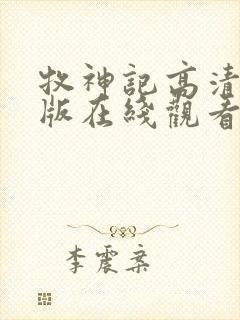 牧神記高清
版在綫觀看
李震案